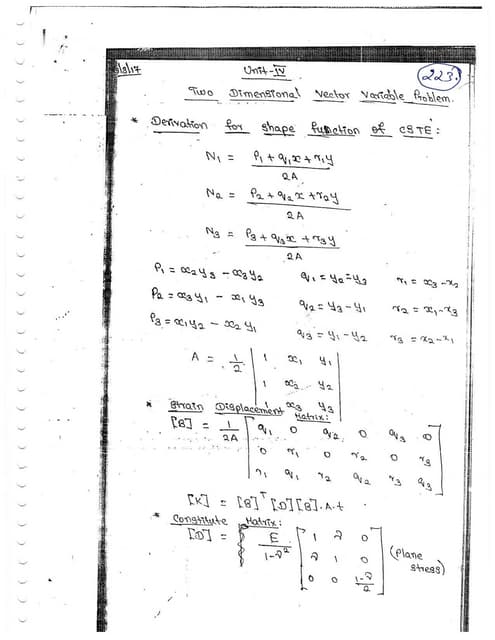 6/3/17
Unit-IV
223.
Two Dimensional Vector Variable Problem.
* Derivation for shape function of CSTE:
N₁ = P₁ + q₁x + r₁y / 2A
N₂ = P₂ + q₂x + r₂y / 2A
N₃ = P₃ + q₃x + r₃y / 2A
P₁ = x₂y₃ - x₃y₂ q₁ = y₂-y₃ r₁ = x₃-x₂
P₂ = x₃y₁ - x₁y₃ q₂ = y₃-y₁ r₂ = x₁-x₃
P₃ = x₁y₂ - x₂y₁ q₃ = y₁-y₂ r₃ = x₂-x₁
A = 1/2 | 1 x₁ y₁
1 x₂ y₂
1 x₃ y₃ |
* Strain Displacement Matrix:
[B] = 1/2A [ q₁ 0 q₂ 0 q₃ 0
0 r₁ 0 r₂ 0 r₃
r₁ q₁ r₂ q₂ r₃ q₃ ]
[K] = [B]ᵀ [D] [B]. A. t
* Constitute Matrix:
[D] = E / 1-ν² [ 1 ν 0
ν 1 0
0 0 1-ν/2 ] (Plane stress)